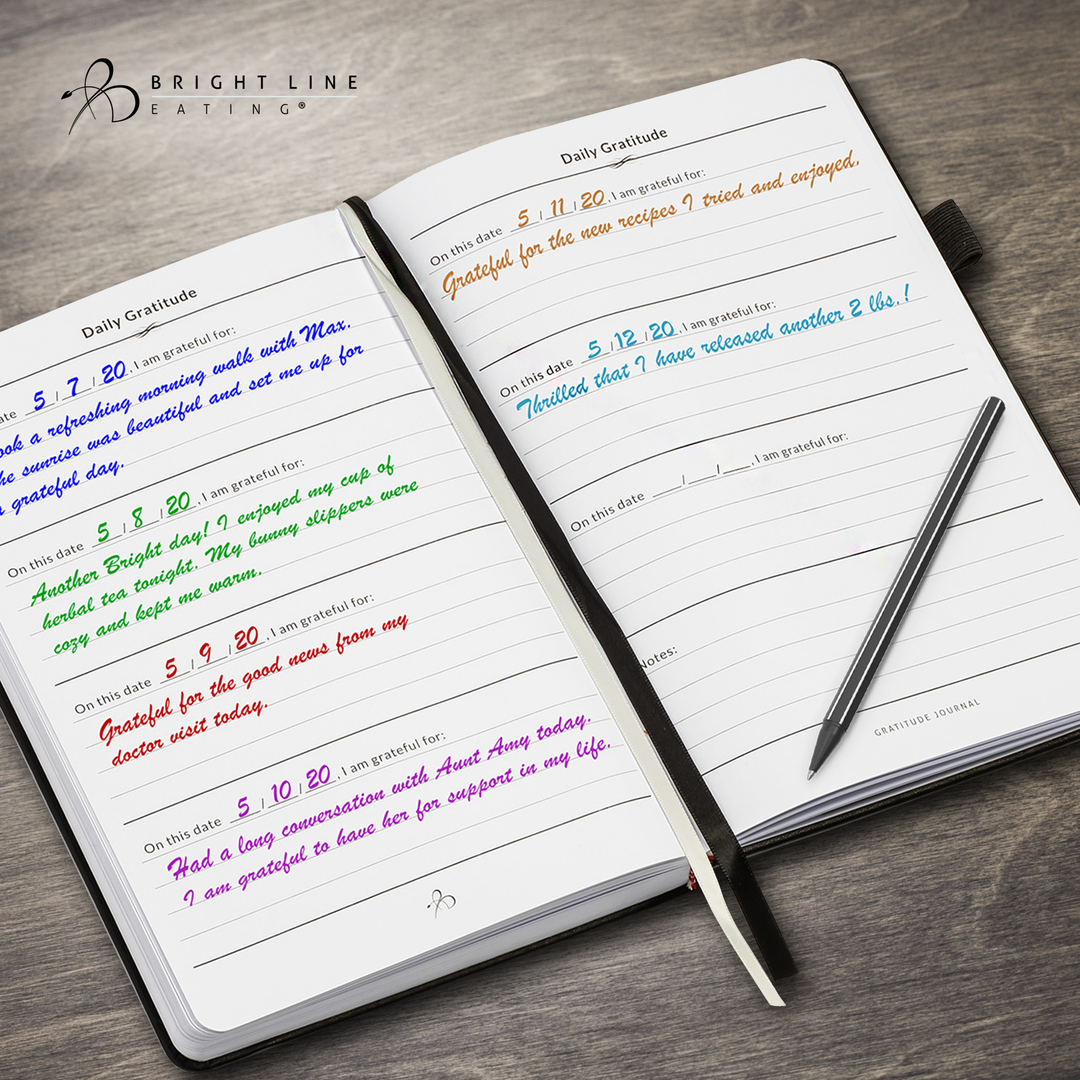 BRIGHT LINE
EATING®
Daily Gratitude
5 / 7 / 20, I am grateful for:
a refreshing morning walk with Max.
sunrise was beautiful and set me up for
grateful day.
On this date 5 / 8 / 20, I am grateful for:
Another Bright day! I enjoyed my cup of
herbal tea tonight. My bunny slippers were
cozy and kept me warm.
On this date 5 / 9 / 20, I am grateful for:
Grateful for the good news from my
doctor visit today.
On this date 5 / 10 / 20, I am grateful for:
Had a long conversation with Aunt Amy today.
I am grateful to have her for support in my life.
Daily Gratitude
On this date 5 / 11 / 20, I am grateful for:
Grateful for the new recipes I tried and enjoyed.
On this date 5 / 12 / 20, I am grateful for:
Thrilled that I have released another 2 lbs.!
On this date ___/___, I am grateful for:
Notes:
GRATITUDE JOURNAL